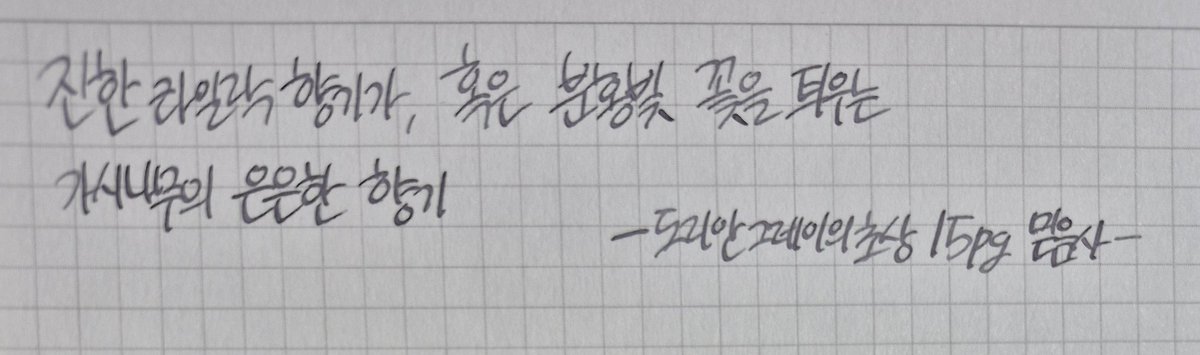 진한 라일락 향기가, 혹은 분홍빛 꽃을 틔우는
가시나무의 은은한 향기
-도리안그레이의초상 15pg 믿음사-